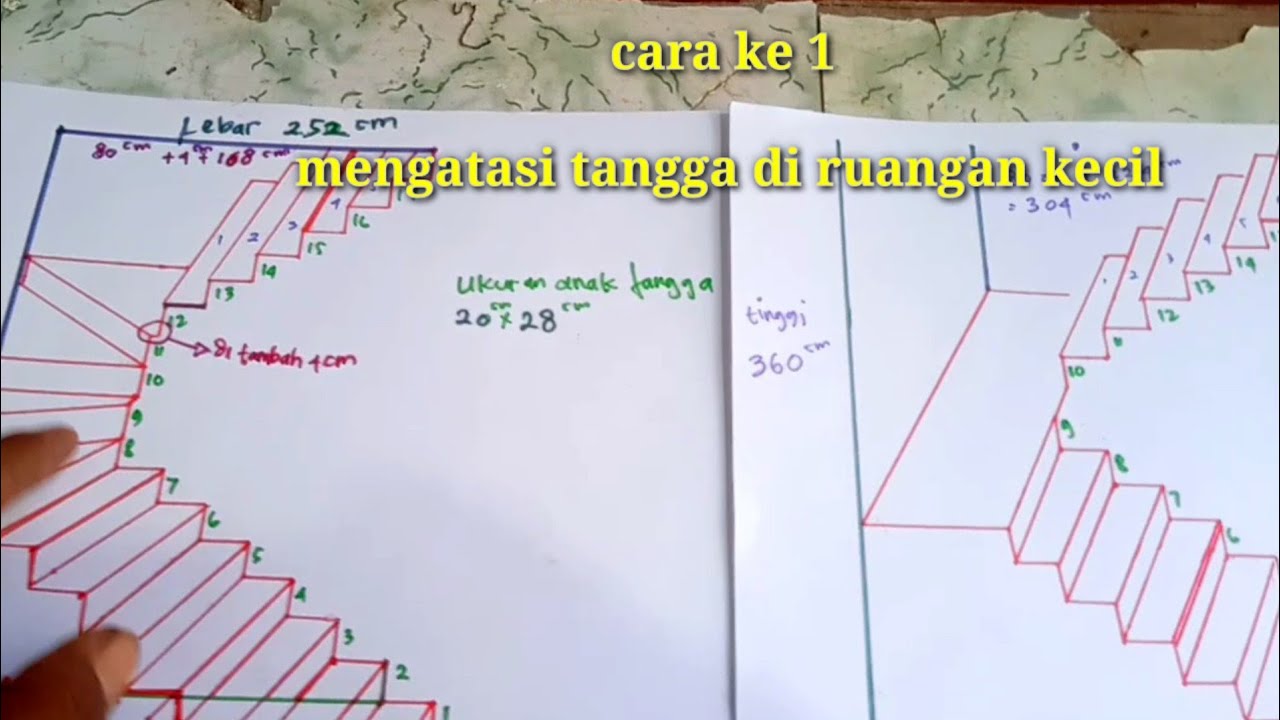 cara ke 1
mengatasi tangga di ruangan kecil
Lebar 252 cm
80 cm + 4 cm + 168 cm
cm
= 304 cm
1
2
3
4
16
15
14
13
12
11
10
9
8
7
6
5
4
3
2
1
di tambah 4 cm
Ukuran anak tangga
20 cm x 28 cm
tinggi
360 cm
1
2
3
4
5
14
13
12
11
10
9
8
7
6